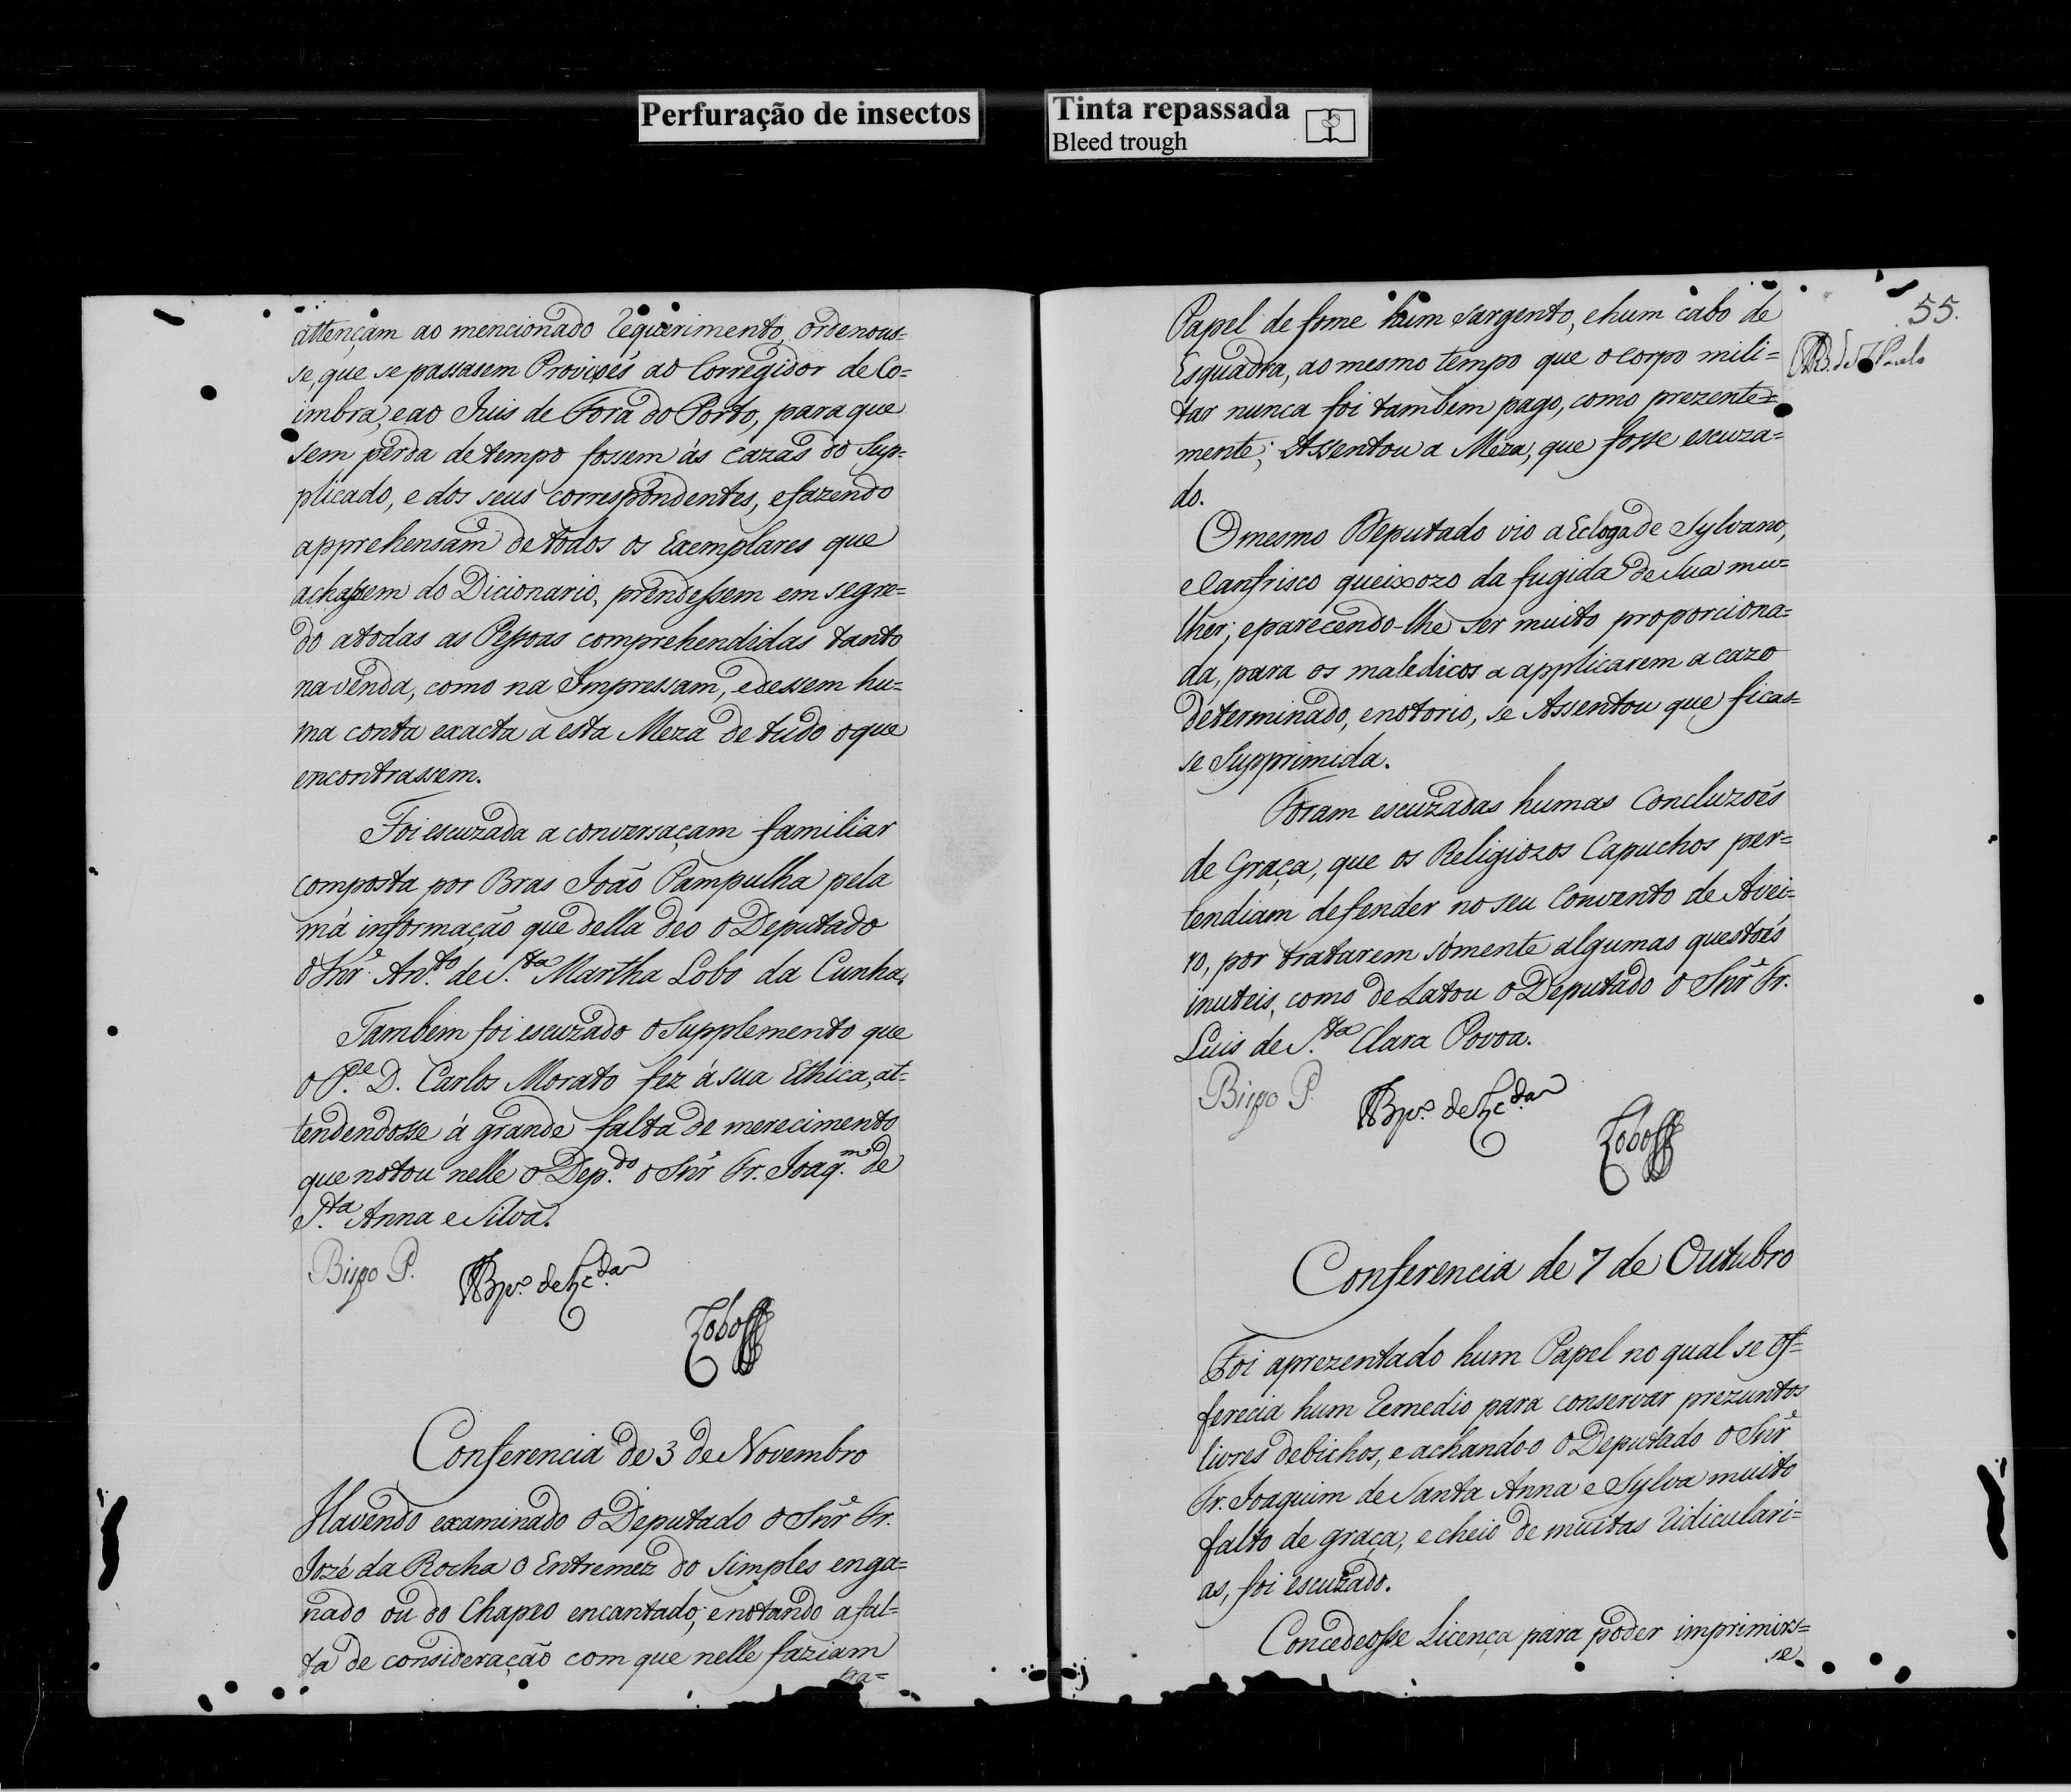 Perfuração de insectos
Tinta repassada
Bleed trough
attençam ao mencionado Requerimento, ordenous=
se, que se passasem Provizés ao Corregidor de Co=
imbra, e ao Juis de Fora do Porto, para que
sem perda de tempo fossem ás cazas do Sup=
plicado, e dos seus correspondentes, e fazendo
apprehensam de todos os Exemplares que
achassem do Dicionario, prendessem em segre=
do a todas as Pessoas comprehendidas tanto
na venda, como na Impressam, e dessem hu=
ma conta exacta a esta Meza de tudo o que
encontrassem.
Foi escuzada a conversaçam familiar
composta por Bras João Pampulha pela
má informação que della deo o Deputado
o Snr. Anto. de Sta. Martha Lobo da Cunha.
Tambem foi escuzado o Supplemento que
o Pe. D. Carlos Morato fez á sua Ethica, at=
tendendosse á grande falta de merecimento
que notou nelle o Depdo. o Snr Fr. Joaqm. de
Sta. Anna e Silva.
Bispo P.
Lobo
Conferencia de 3 de Novembro
Havendo examinado o Deputado o Snr Fr.
Jozé da Rocha o Entremez do simples enga=
nado ou do Chapeo encantado; e notando a fal=
ta de consideração com que nelle faziam
pa=
55.
Papel de fome hum sargento, e hum cabo de
Esquadra, ao mesmo tempo que o corpo mili=
tar nunca foi tambem pago, como prezente=
mente; Assentou a Meza, que fosse escuza=
do.
O mesmo Deputado vio a Ecloga de Sylvano,
e Canfrisco queixozo da fugida de Sua mu=
lher; e parecendo-lhe ser muito proporciona=
da, para os maledicos a applicarem a cazo
determinado, e notorio, se Assentou que ficas=
se Supprimida.
Foram escuzadas humas Concluzoẽs
de Graça, que os Religiozos Capuchos per=
tendiam defender no seu Convento de Avei=
ro, por tratarem sómente algumas questoẽs
inuteis, como de Latou o Deputado o Snr Fr.
Luis de Sta. Clara Povoa.
Bispo P.
Lobo
Conferencia de 7 de Outubro
Foi aprezentado hum Papel no qual se of=
ferecia hum Remedio para conservar prezuntos
livres de bichos, e achando-o o Deputado o Snr
Fr. Joaquim de Santa Anna e Sylva muito
falto de graça, e cheio de muitas Ridiculari=
as, foi escuzado.
Concedeosse Licença para poder imprimirs=
se